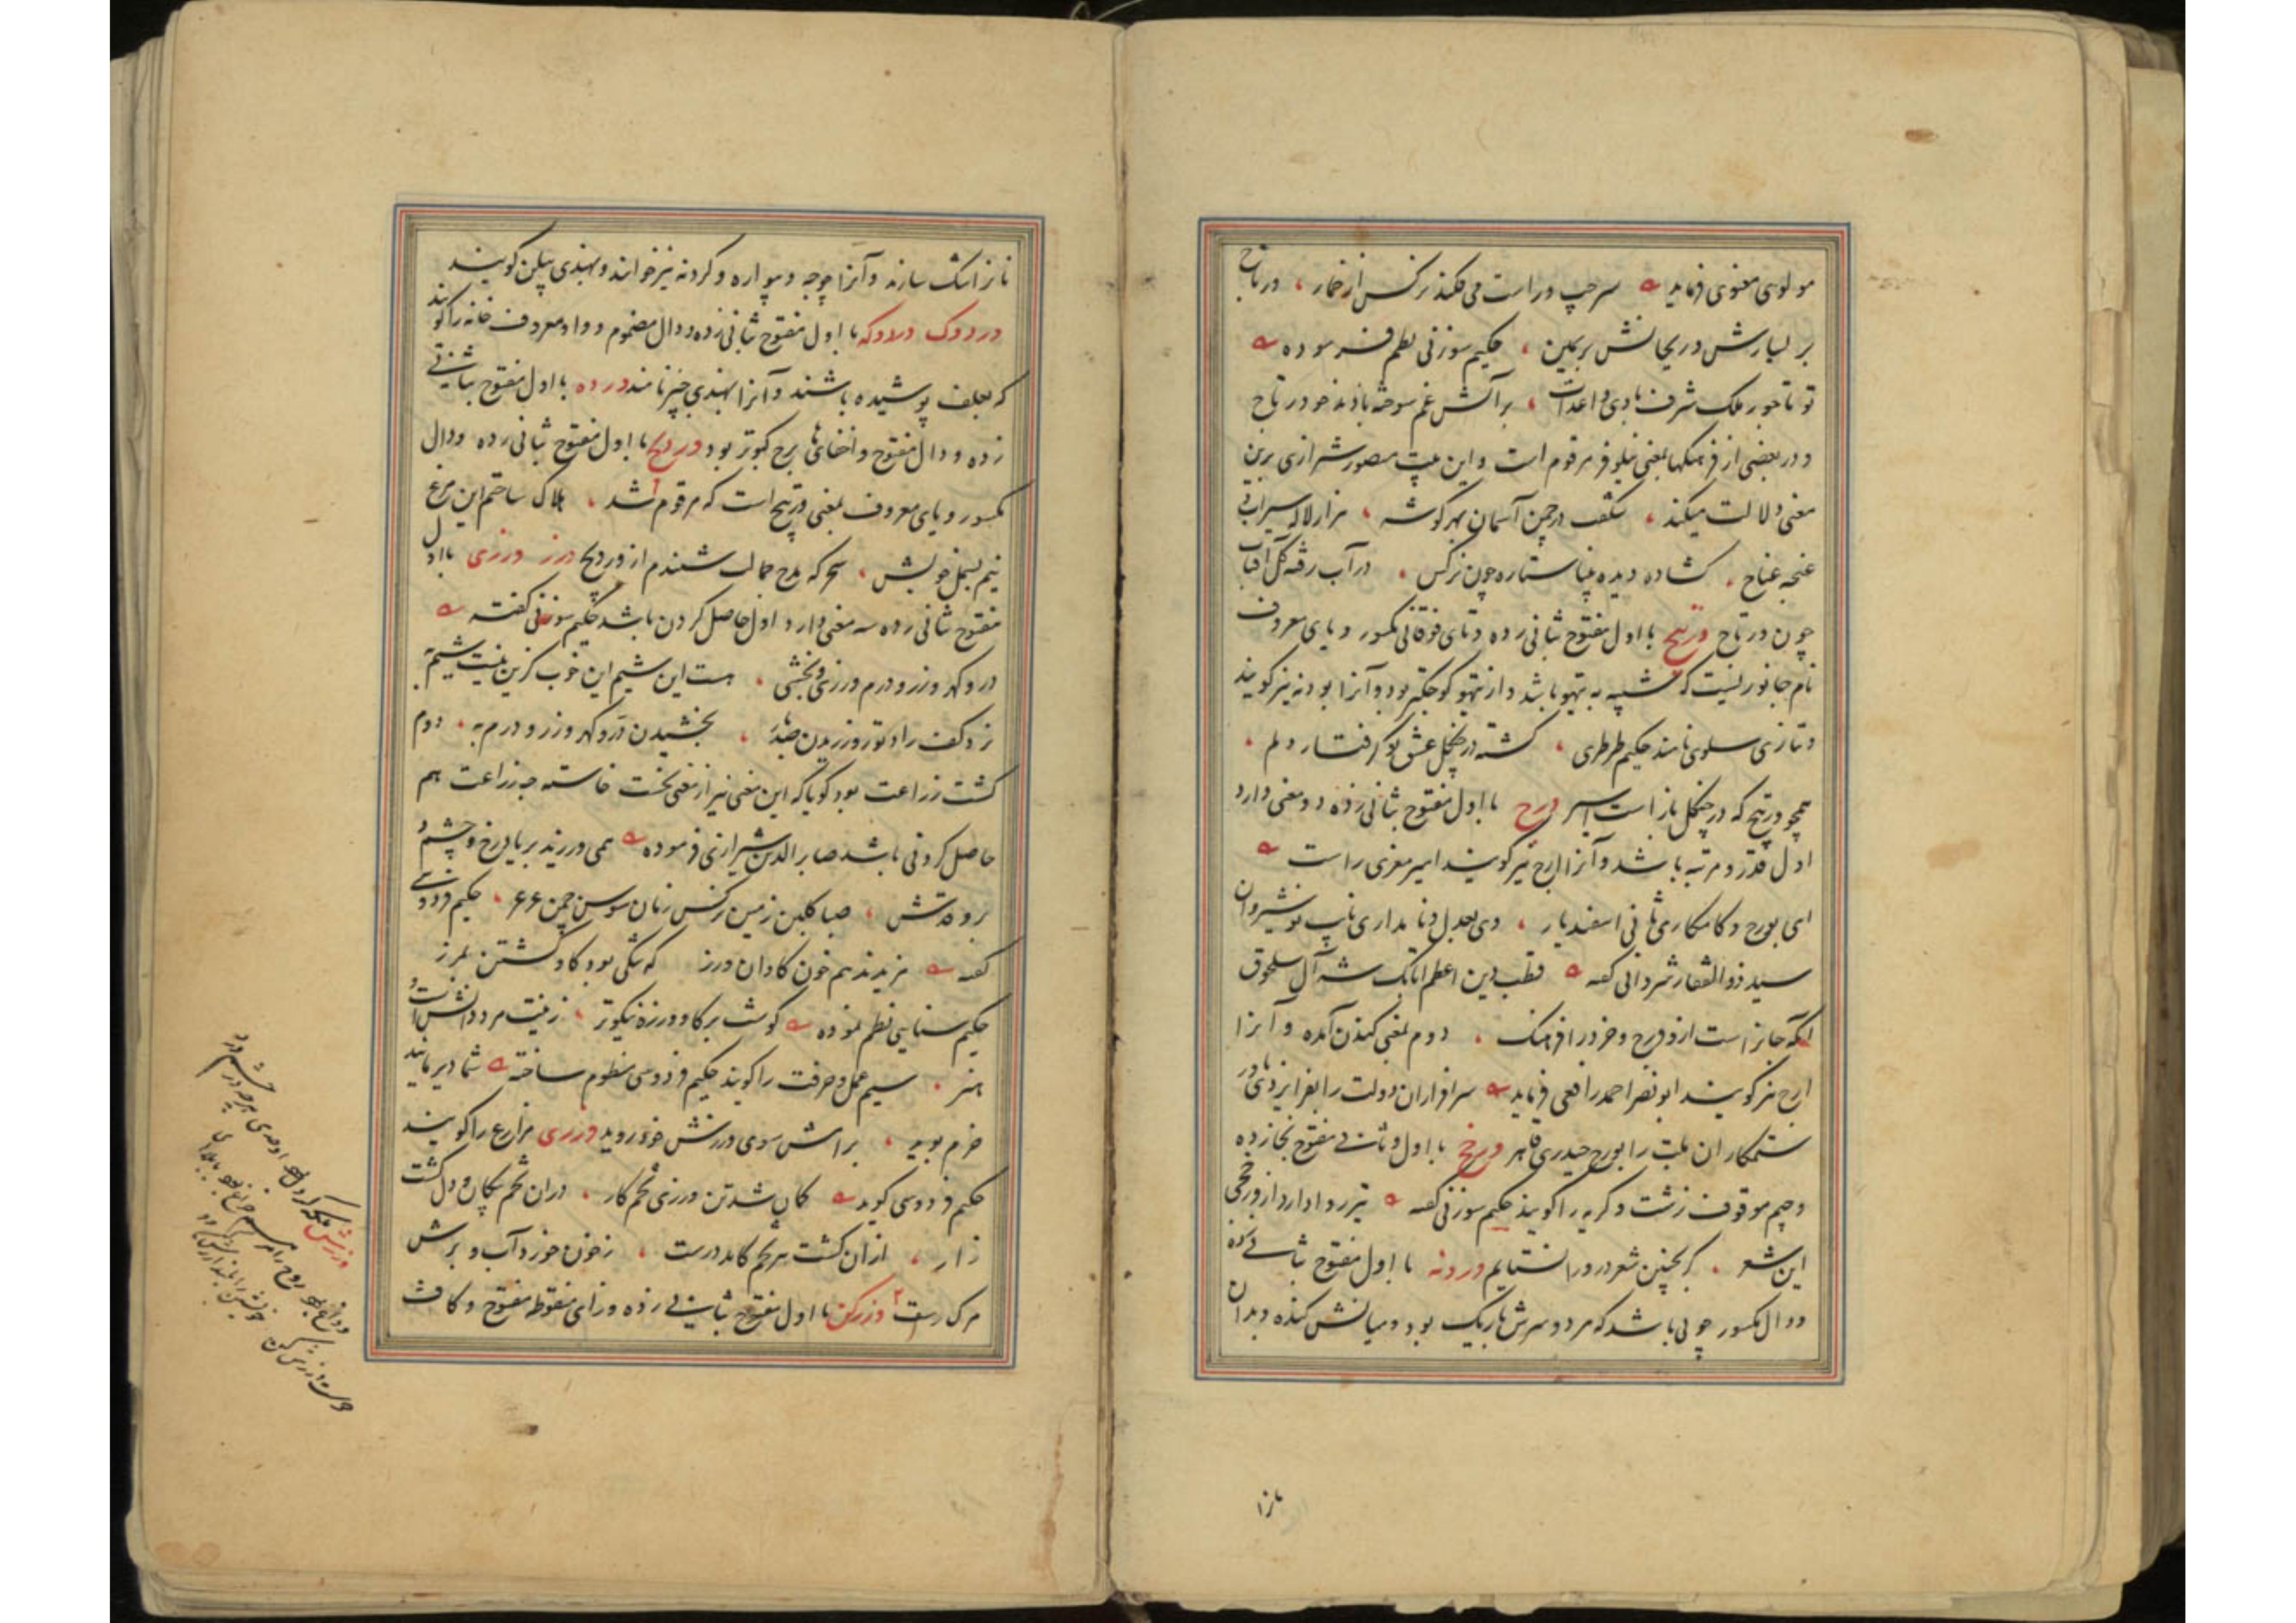 مولوی معنوی فرماید سر چپ و راست می فکند نرکس از خمار ، ورتاج
بر یسارش و ریحانش بر یمین ، حکیم سوزنی نظم فرموده
تو تاجور بملک شرف بادی و اعدات ، بر آتش غم سوخته بادند چو ورتاج
و در بعضی از فرهنکها بمعنی نیلوفر مرقوم است و این بیت منصور شیرازی برین
معنی دلالت میکند ، شکفت در چمن آسمان بهر کوشه ، هزار لاله سیراب
غنچه غناج ، کشاده دیده ستاره چون نرکس ، در آب رفته کل آفتاب
چون ورتاج ورتیج با اول مفتوح بثانی زده و تای فوقانی مکسور و یای معروف
نام جانوریست که شبیه به تیهو باشد و از تیهو کوچکتر بود و آنرا بودنه نیز کویند
و بتازی سلوی نامند حکیم طرطری ، کشته در چنکل عشق تو کرفتار دلم ،
همچو ورتیج که در چنکل باز است اسیر ورج با اول مفتوح بثانی زده دو معنی دارد
اول قدر و مرتبه باشد و آنرا ارج نیز کویند امیر معزی راست
ای بورج و کامکاری ثانی اسفندیار ، وی بعدل و نامداری نایب نوشیروان
سید ذوالفقار شروانی کفته قطب دین اعظم اتابک شه آل سلجوق
آنکه جانرا است ازو ورج و خرد را فرهنک ، دوم بمعنی کندن آمده و آنرا
ارج نیز کویند ابونصر احمد رافعی فرماید سرافرازان دولت را بفر ایزدی
ستمکاران ملت را بورج حیدری قاهر ورخج با اول و ثانی مفتوح بخا زده
و جیم موقوف زشت و کریه را کویند حکیم سوزنی کفته
این شعر ، کر بچنین شعر ورا نستایم وردنه با اول مفتوح بثانی زده
و دال مکسور چوبی باشد که هر دو سرش باریک بود و میانش کنده و بدان
نانرا
نانرا تنک سازند و آنرا چوجه و بیواره و کردنه نیز خوانند و بهندی بیلن کویند
وردوک وردوکه با اول مفتوح بثانی زده و دال مضموم و واو معروف خانه را کویند
که بعلف پوشیده باشند و آنرا بهندی چپر نامند ورده با اول مفتوح بثانی
زده و دال مفتوح و اخفای ها برج کبوتر بود وردیج با اول مفتوح بثانی زده و دال
مکسور و یای معروف بمعنی ورتیج است که مرقوم شد ، هلاک ساختم این مرغ
نیم بسمل خویش ، سحر که مدح جمالت شنیدم از وردیج ورز ورزی با اول
مفتوح بثانی زده سه معنی دارد اول حاصل کردن باشد حکیم سوزنی کفته
در و کهر و زر و درم ورزی و بخشی ، هست این شیم این خوب کزین نیست شیم به
بخشیدن در و کهر و زر و درم به ، دوم
کشت و زراعت بود کویا که این معنی نیز از معنی نخست خاسته چه زراعت هم
حاصل کردنی باشد صابر الدین شیرازی فرموده همی ورزند بر یاد رخ و چشم و
بر و قدش ، صبا کلبن زمین نرکس زمان سوسن چمن عرعر ، حکیم فردوسی
کفته مریزید هم خون کاوان ورز که ننکی بود کاو کشتن بمرز
حکیم سنایی نظم نموده کوشت بر کاو ورزه نیکوتر ، زینت مرد دانش است و
هنر ، سیم عمل و حرفت را کویند حکیم فردوسی منظوم ساخته شما دیر مانید
خرم بوید ، سوی ورزش خود روید ورزی مزارع را کویند
حکیم فردوسی کوید کمان شد تن ورزی تخم کار ، دران تخم پیکان و دل کشت
زار ، ازان کشت هر تخم کامد درست ، ز خون خورد آب و برش
مرک رست ورزکن با اول مفتوح بثانی زده و زای منقوطه مفتوح و کاف
ورزش